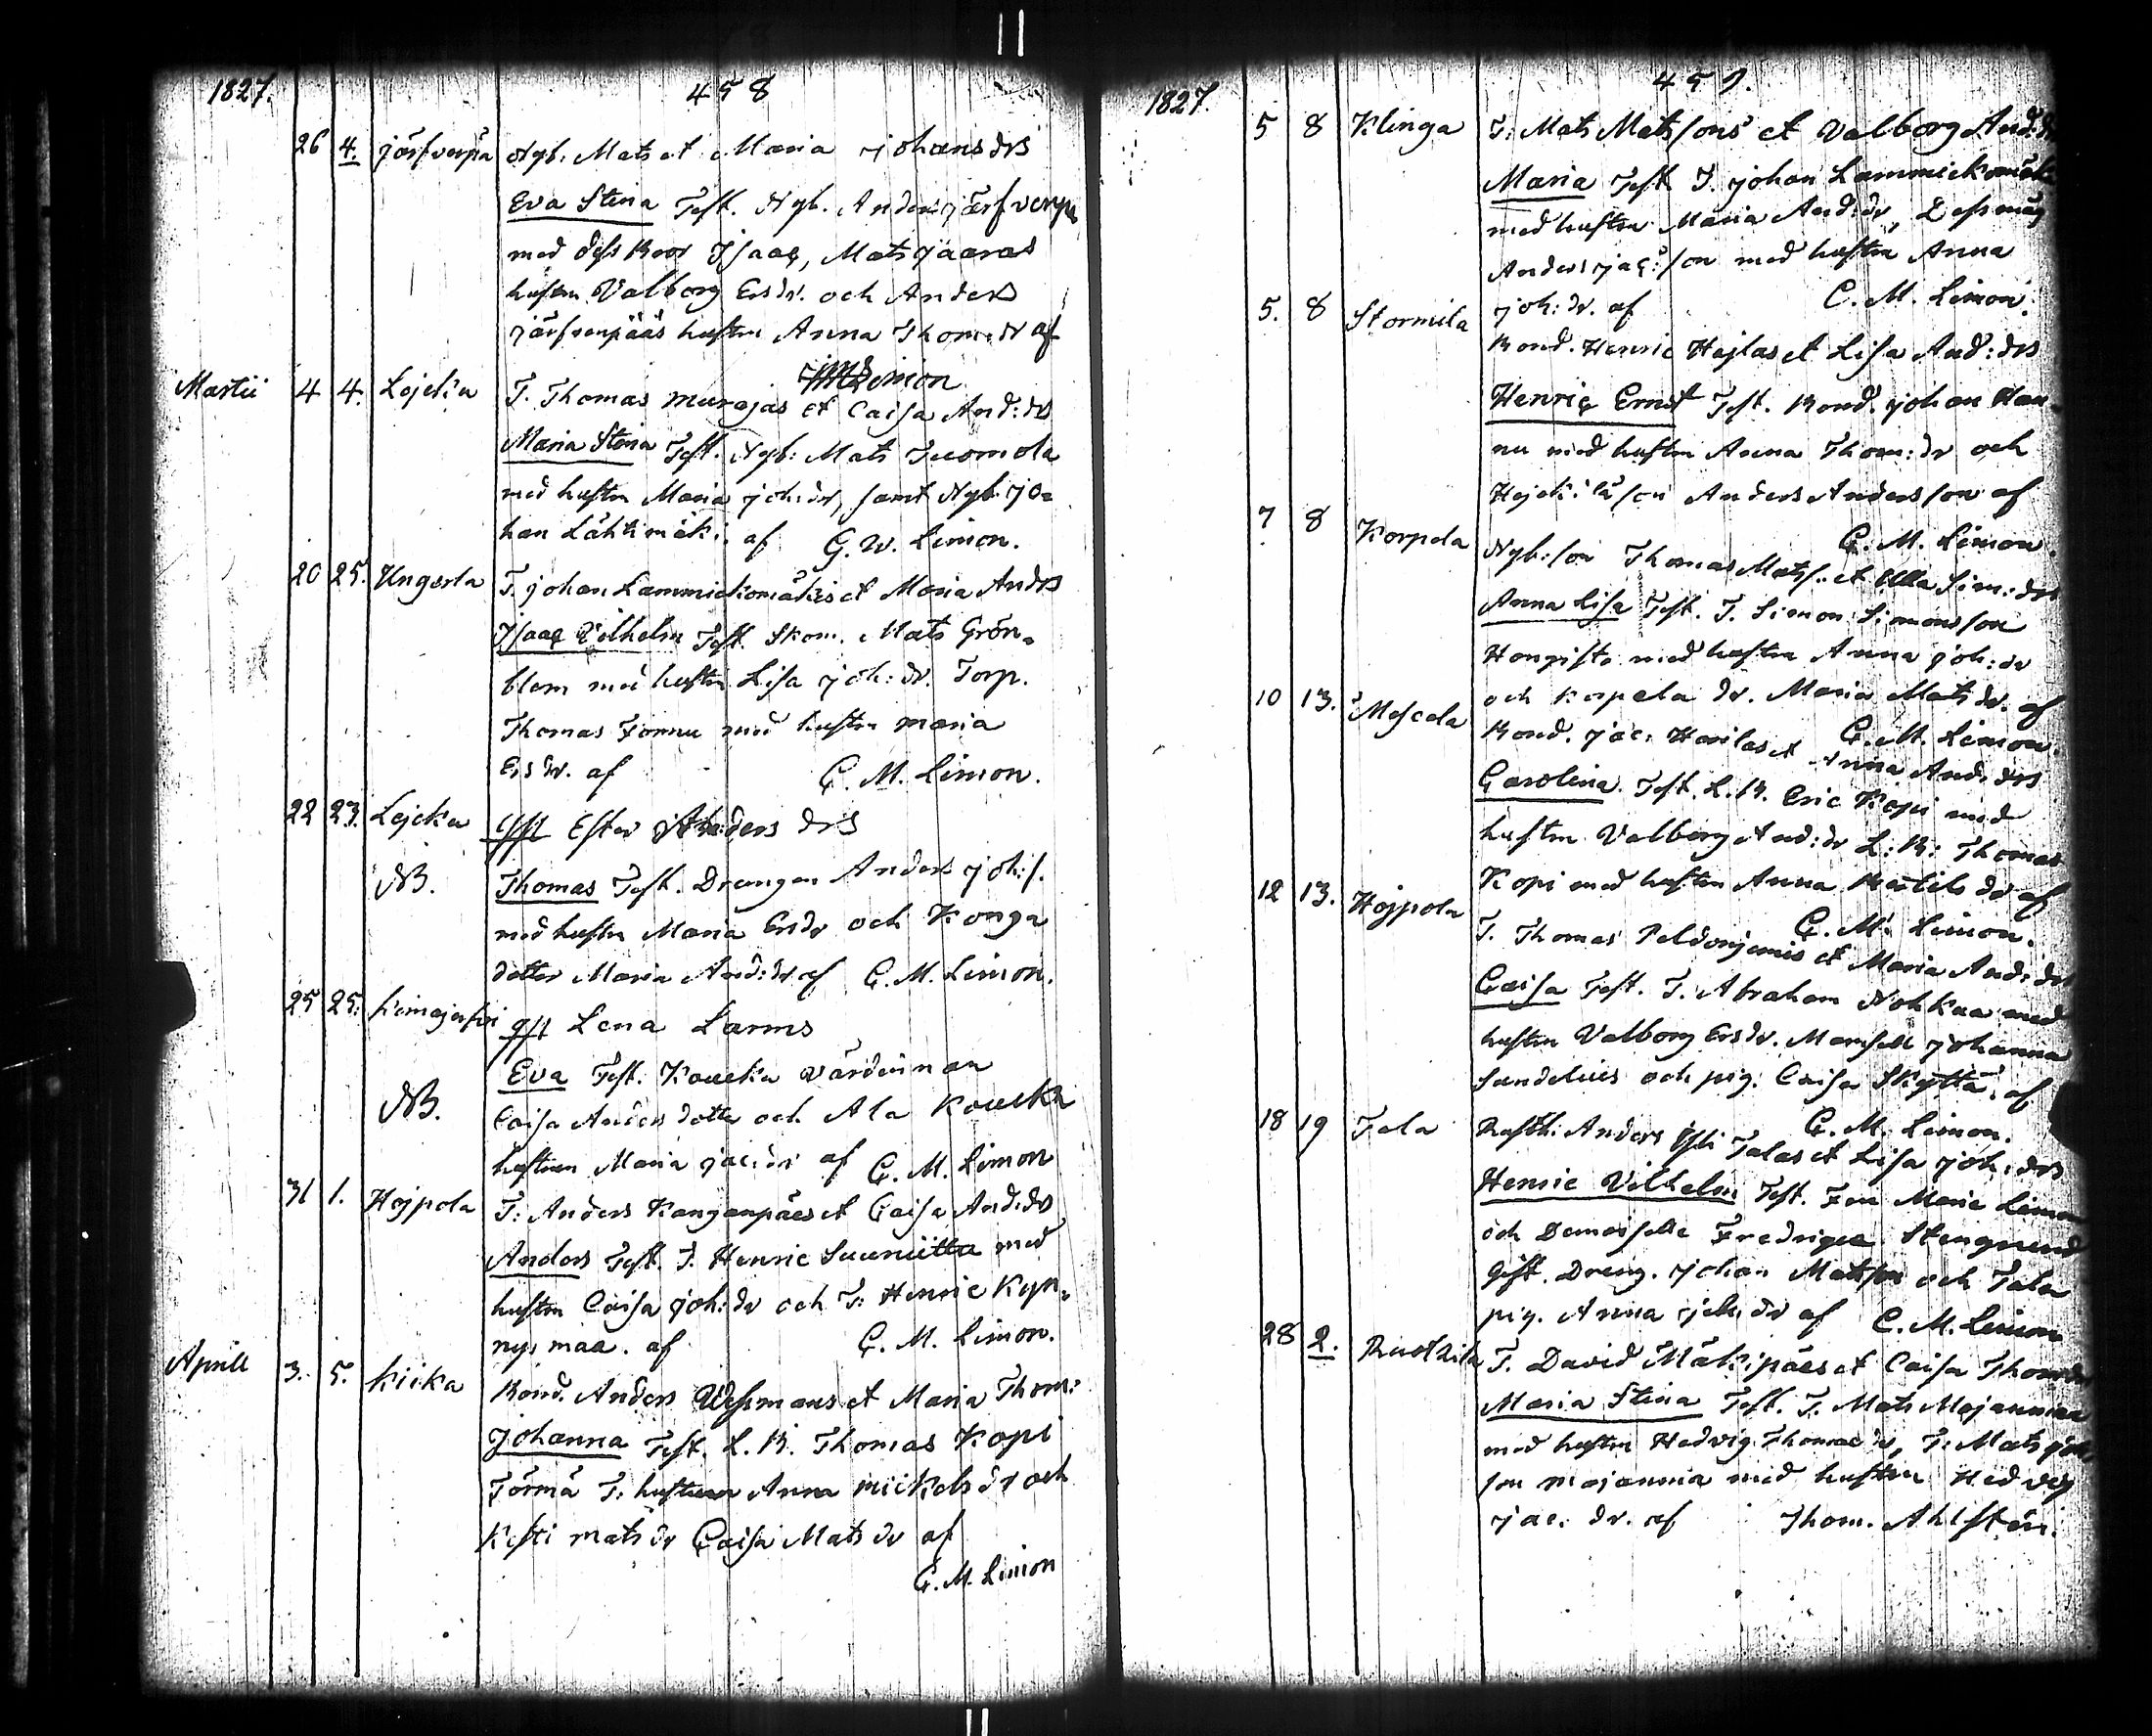 1827. 458
26 4. järfvenpä Nyb. Mats et Maria Johans drs
Eva Stina Test. Nyb. Anders järfvenpä
med dess Bror Isaac, Mats Jaaras
hustru Valborg Ersdr. och Anders
järfvenpääs hustru Anna Thom: dr af
Limon
Martii 4 4. Lejcku T. Thomas murajas et Caisa And: drs
Maria Stina Test. Nyb: Mats Tuomola
med hustru Maria joh: dr, samt Nyb. jo=
han Lähtimäki af G. W. Limon.
20 25. Ungerla T. johan Lammickomäkis et Maria Andrs
Isaac Vilhelm Test. Skom. Mats Grön=
blom med hustru Lisa joh: dr. Torp.
Thomas Fonnu med hustru maria
Ersdr. af G. M. Limon.
22 23. Lejcku Ester Anders drs
NB. Thomas Test. Drengen Anders joh: s.
med hustru Maria Ersdr och Konga
dotter Maria And: dr af G. M. Limon.
25 25. Lena Larms
Eva Test. Koucku värdinnan
NB. Caisa Anders dotter och Ala Koucku
hustrun Maria jac: dr af G. M. Limon
31 1. Hojpola T: Anders Kanganpäes et Caisa And: drs
Anders Test. T. Henric Suuniitta med
hustru Caisa joh: dr och T: Henric Kyn=
nys maa. af G. M. Limon.
Aprill 3. 5. Kicka Bond. Anders Uhsmans et Maria Thom:
Johanna Test. L. B. Thomas Kopi
Törmä T: hustrun Anna mickels dr och
Kisti mats dr Caisa Mats dr af
G. M. Limon
1827. 459.
5 8 Klinga T: Mats Matssons et Valborg And: dr
Maria Test. T. johan Lammickomäki
med hustru Maria And: dr, Dess måg
Anders jac: son med hustru Anna
joh: dr. af G. M. Limon.
5. 8 Stormila Bond. Henric Hejlas et Lisa And: drs
Henric Ernst Test. Bond. johan Han-
nu med hustru Anna Thom: dr och
Hejckilä son Anders Andersson af
G. M. Limon.
7 8 Korpela Nyb: son Thomas Mats s. et Ulla Sim: drs
Anna Lisa Test. T. Simon Simonsson
Hongisto med hustru Anna joh: dr
och Korpela dr. Maria Mats dr. af
G. M. Limon.
10 13. Mescala Bond. jac: Havilas et Anna And: drs
Carolina Test. L. B. Eric Kopi med
hustru Valborg And: dr L: B: Thomas
Kopi med hustru Anna Bertils dr af
G. M. Limon.
12 13. Hojpola T. Thomas Peldonjemis et Maria And: drs
Caisa Test. T. Abraham Nohkaa med
hustru Valborg Ersdr. Mamsell johanna
Sandelius och pig. Caisa Skyttä, af
G. M. Limon.
18 19 Tala Rusth. Anders Talas et Lisa joh: drs
Henric Vilhelm Test. Fru Maria Limon
och Demoiselle Fredrique Stengrund
Gift. Dreng. johan Matsson och Tala
pig. Anna joh: dr af G. M. Limon
28 2. T. David Mäkipäes et Caisa Thom: dr
Maria Stina Test. T. Mats Majanmaa
med hustru Hedvig Thomae dr, T: Mats joh:
son majanmaa med hustru Hedvig
jac: dr. af Thom. Ahlstén.